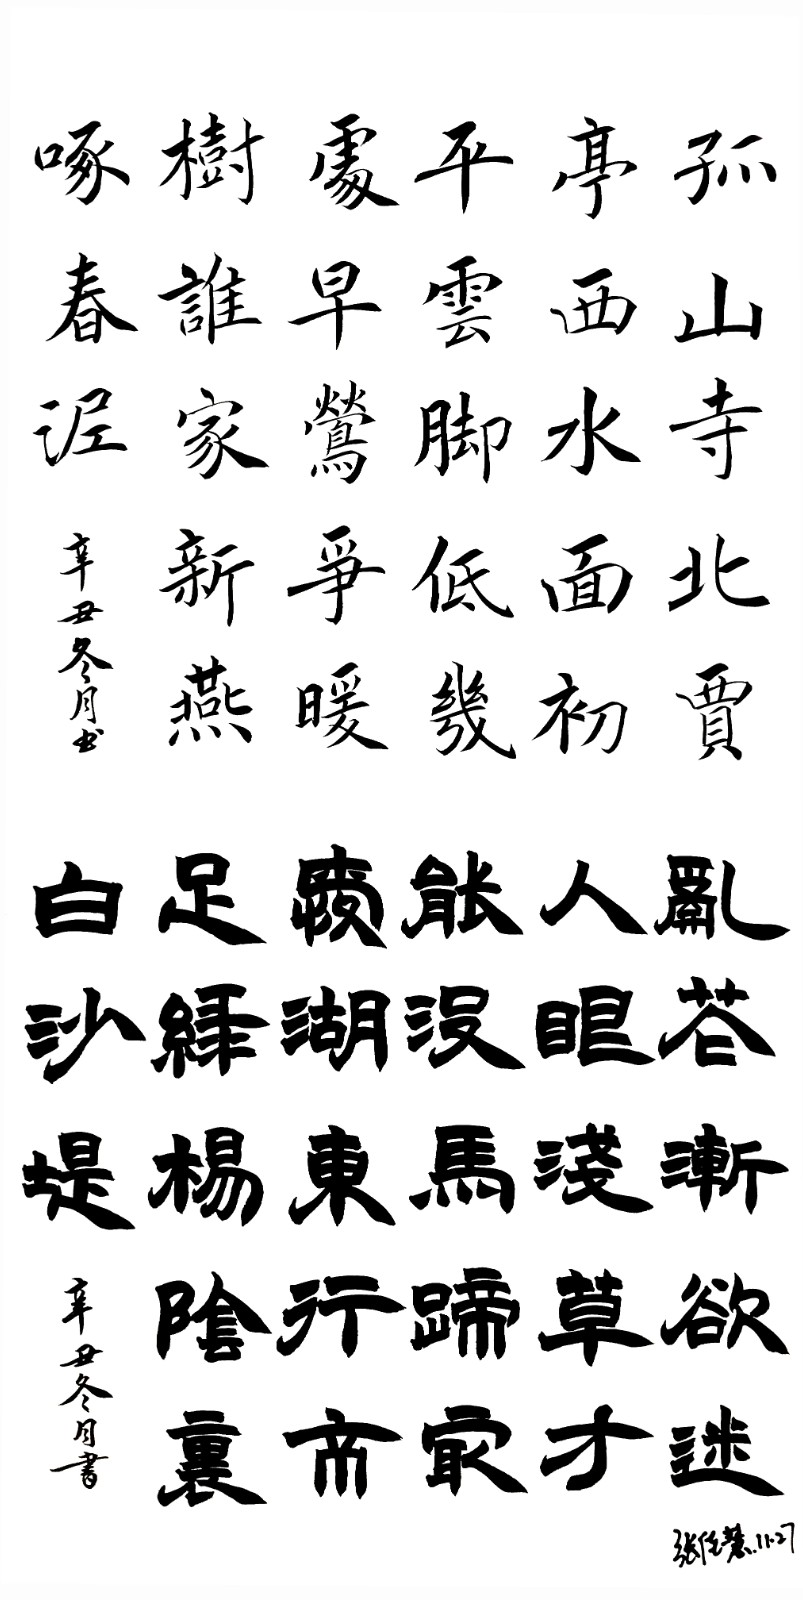 孤山寺北賈
亭西水面初
平雲脚低幾
處早鶯爭暖
樹誰家新燕
啄春泥
辛丑冬月书
亂花漸欲迷
人眼淺草才
能沒馬蹄冣
愛湖東行不
足綠楊陰裏
白沙堤
辛丑冬月書
张 慧.11.27